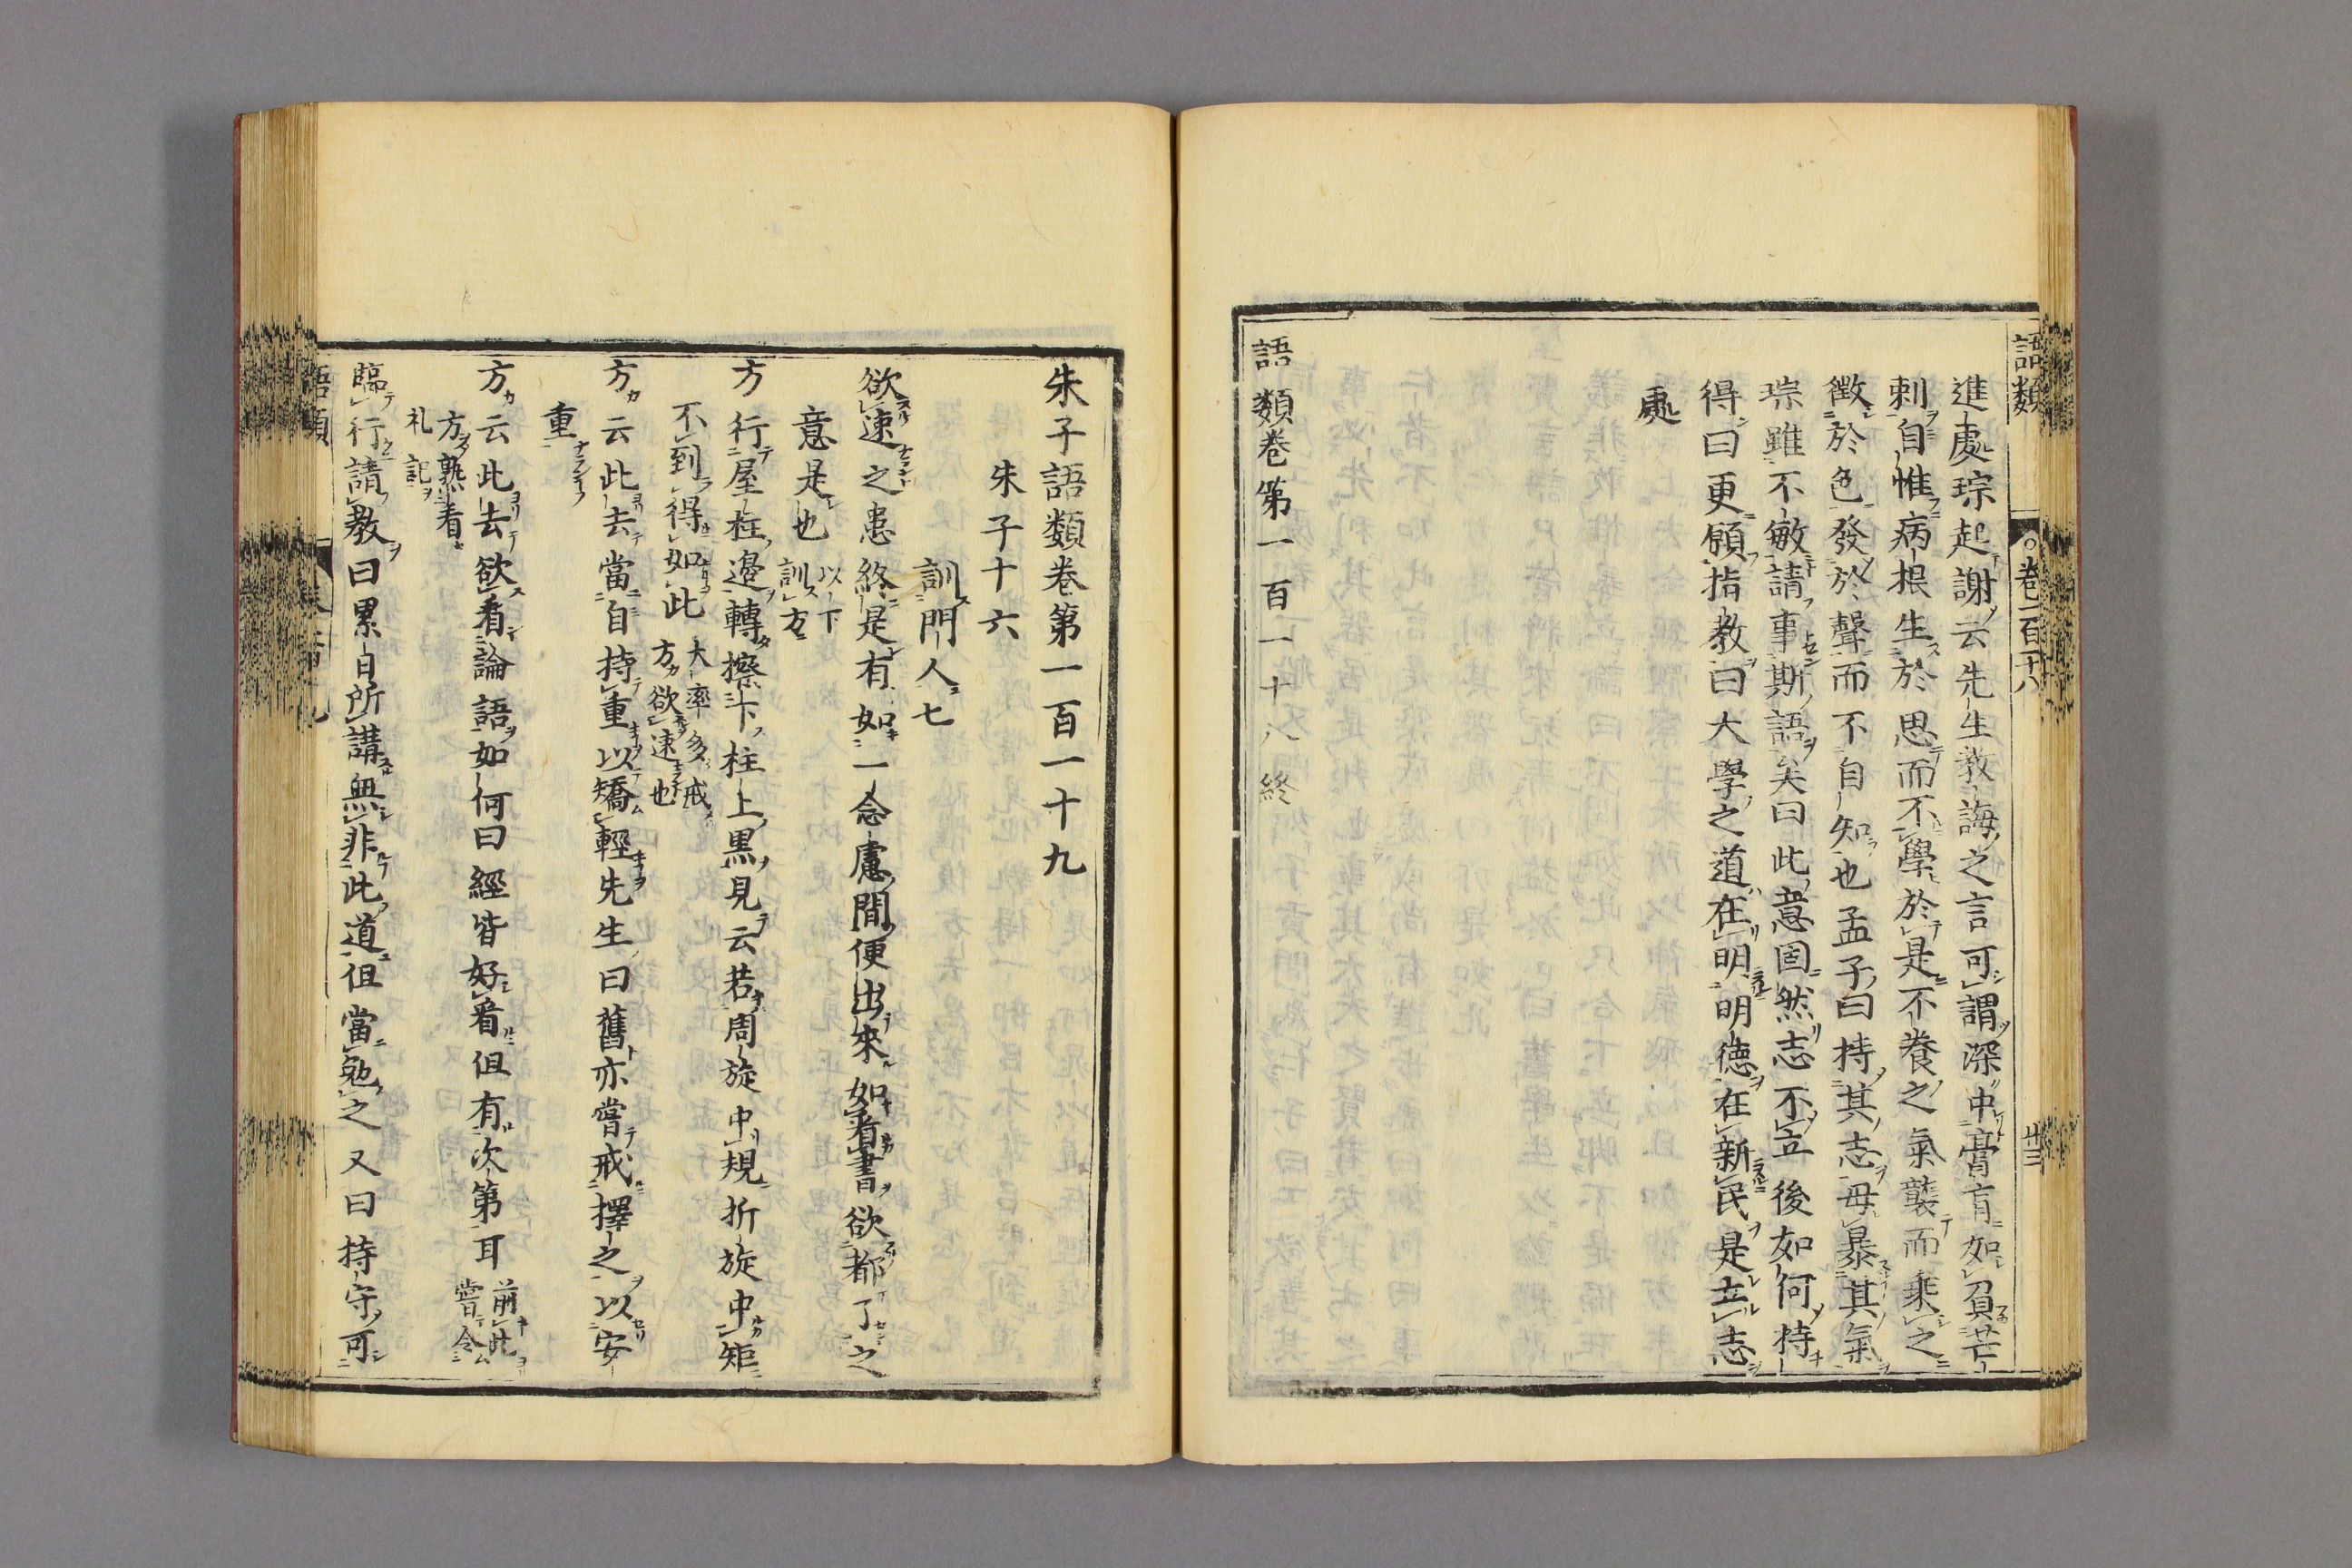 語類
卷一百十八
廿三
進處琮起謝云先生教誨之言可謂深中膏肓如負芒
刺自惟病根生於思而不學於是不養之氣襲而乘之
徵於色發於聲而不自知也孟子曰持其志毋暴其氣
琮雖不敏請事斯語矣曰此意固然志不立後如何持
得曰更願指教曰大學之道在明明德在新民是立志
處
語類卷第一百一十八終
朱子語類卷第一百一十九
朱子十六
訓門人七
欲速之患終是有如一念慮間便出來如看書欲都了之
意是也以下訓方
方行屋柱邊轉擦下柱上黑見云若周旋中規折旋中矩
不到得如此大率多戒方欲速也
方云此去當自持重以矯輕先生曰舊亦嘗戒擇之以安
重
方云此去欲看論語如何曰經皆好看但有次第耳前此嘗令
方熟看礼記
臨行請教曰累日所講無非此道但當勉之又曰持守可
語類